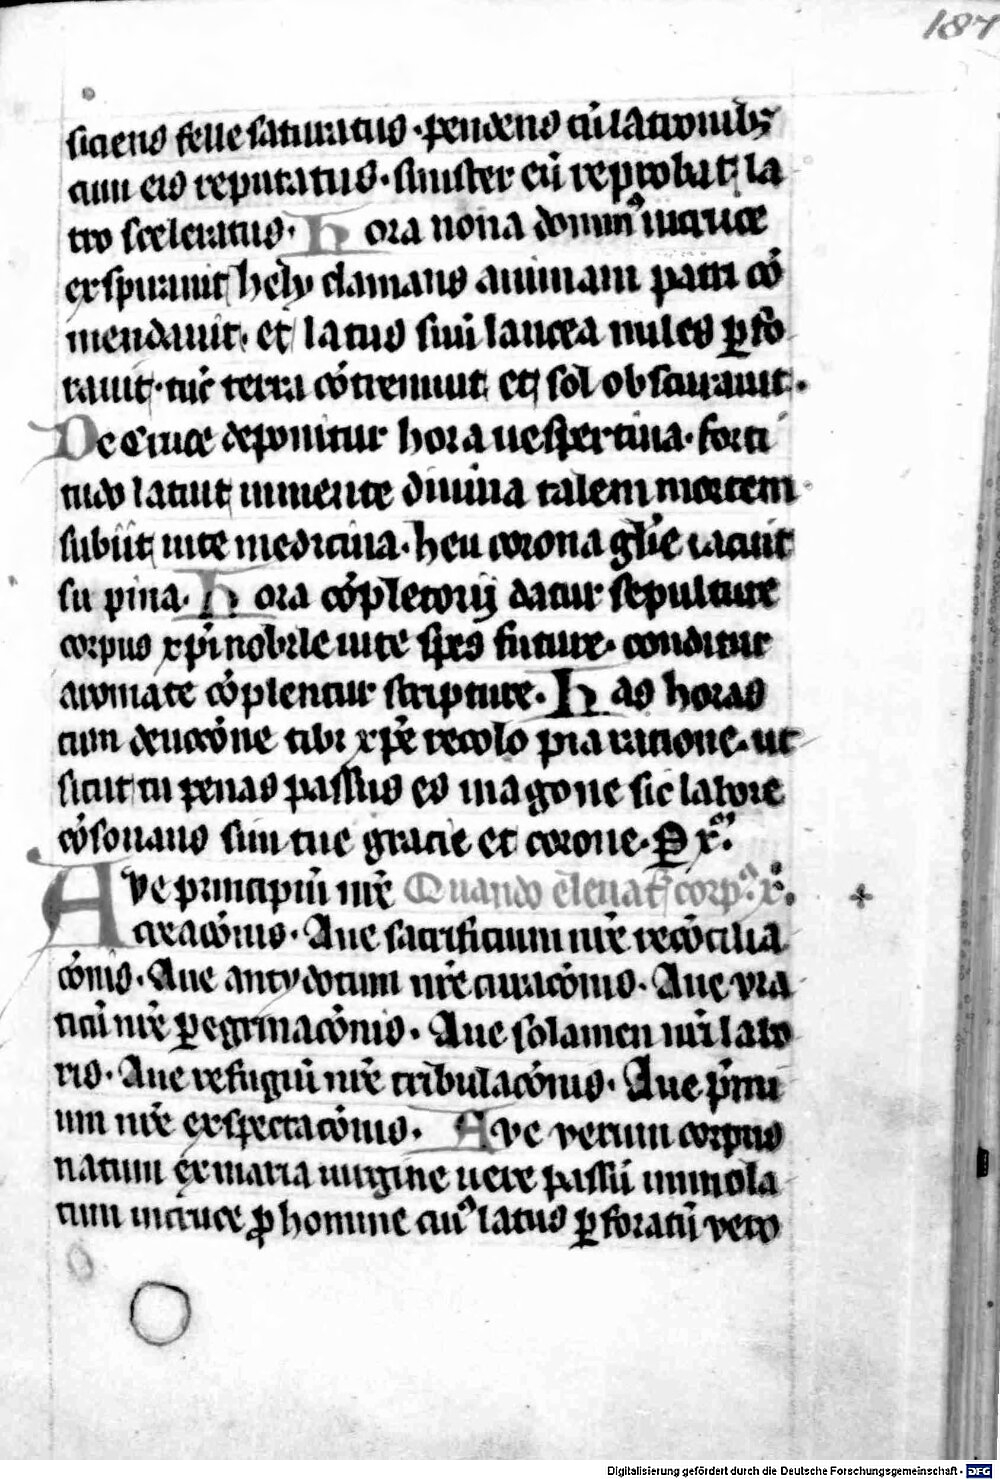 187
siciens felle saturatus · pendens cū latronibꝫ
cum eis reputatus · sinister eū reprobat la
tro sceleratus · Hora nona domin⁹ in cruce
exspirauit hely clamans animam patri cō
mendauit · et latus sini lancea miles ꝑfo
rauit · tūc terra cōtremuit et sol obscurauit ·
De cruce deponitur hora uespertina · forti
tudo latuit in mente diuina talem mortem
subiit uite medicina · heu corona glīe iacuit
supina · Hora cōpletorij datur sepulture
corpus xp̄i nobile uite spes future · conditur
aromate cōplentur scripture · Has horas
cum deuocōne tibi xp̄e recolo pia racione · ut
sicut tu penas passus es in agone sic labore
cōsonans sim tue gracie et corone · P x̄ ·
Ave principiū nr̄e Quando eleuat᷑ corp⁹ x̄ ·
creacōnis · Aue sacrificium nr̄e recōcilia
cōnis · Aue antydotum nr̄e curacōnis · Aue via
ticū nr̄e ꝑegrinacōnis · Aue solamen nr̄i labo
ris · Aue refugiū nr̄e tribulacōnis · Aue p̄mi
um nr̄e exspectacōnis · Ave verum corpus
natum ex maria uirgine uere passū immola
tum in cruce ꝓ homine cui⁹ latus ꝑforatū vero
Digitalisierung gefördert durch die Deutsche Forschungsgemeinschaft - DFG